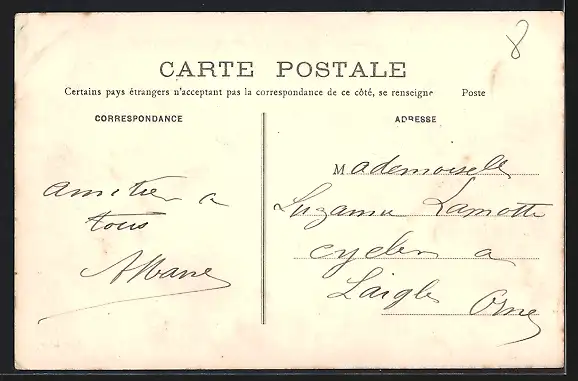 8
CARTE POSTALE
Certains pays étrangers n'acceptant pas la correspondance de ce côté, se renseigne Poste
CORRESPONDANCE
ADRESSE
Mademoiselle
Suzanne Lamotte
cycles a
Laigle Orne
amitiés a
tous